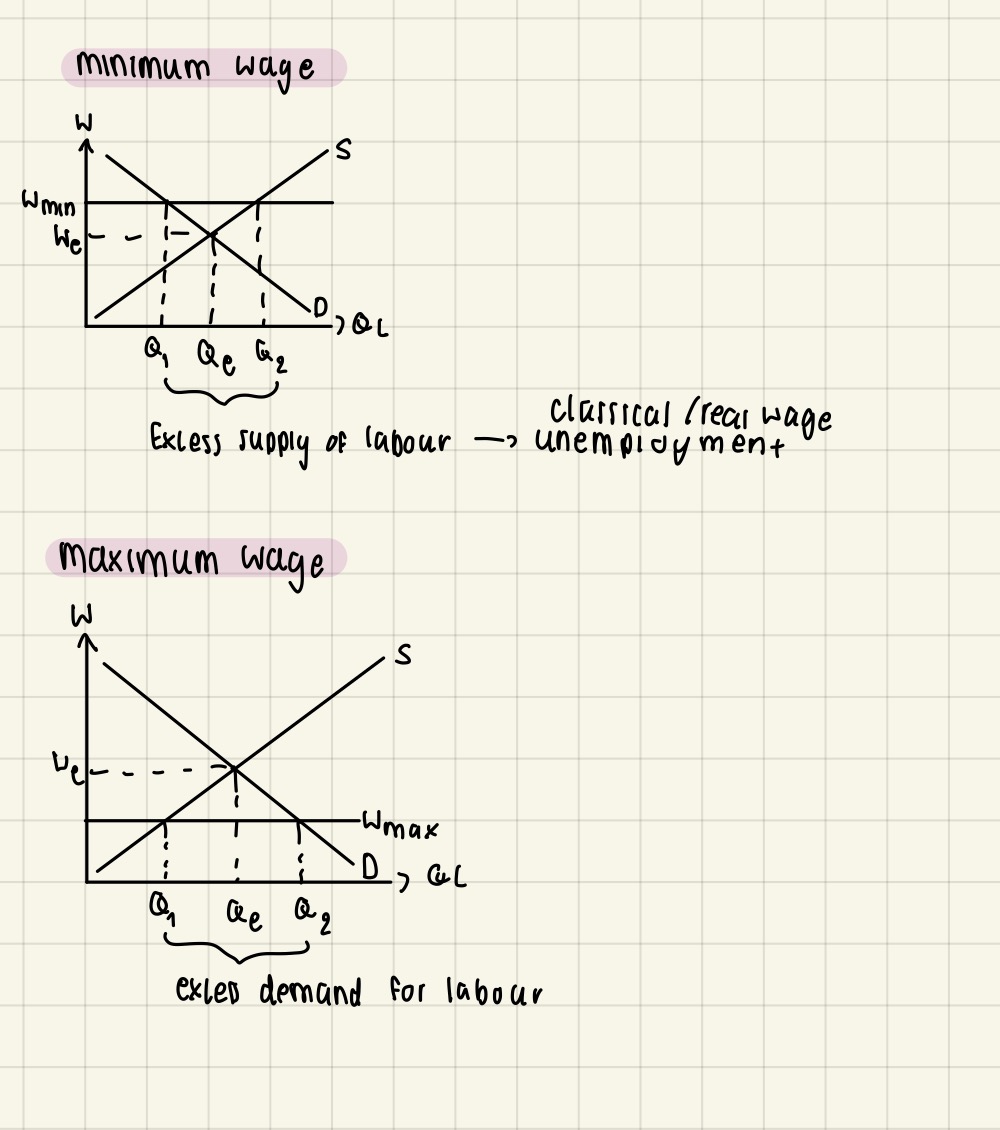 minimum wage
W
S
Wmin
We
D
QL
Q1 Qe Q2
Exless supply of labour → classical / real wage
unemployment
maximum wage
W
S
We
Wmax
D
QL
Q1 Qe Q2
exless demand for labour